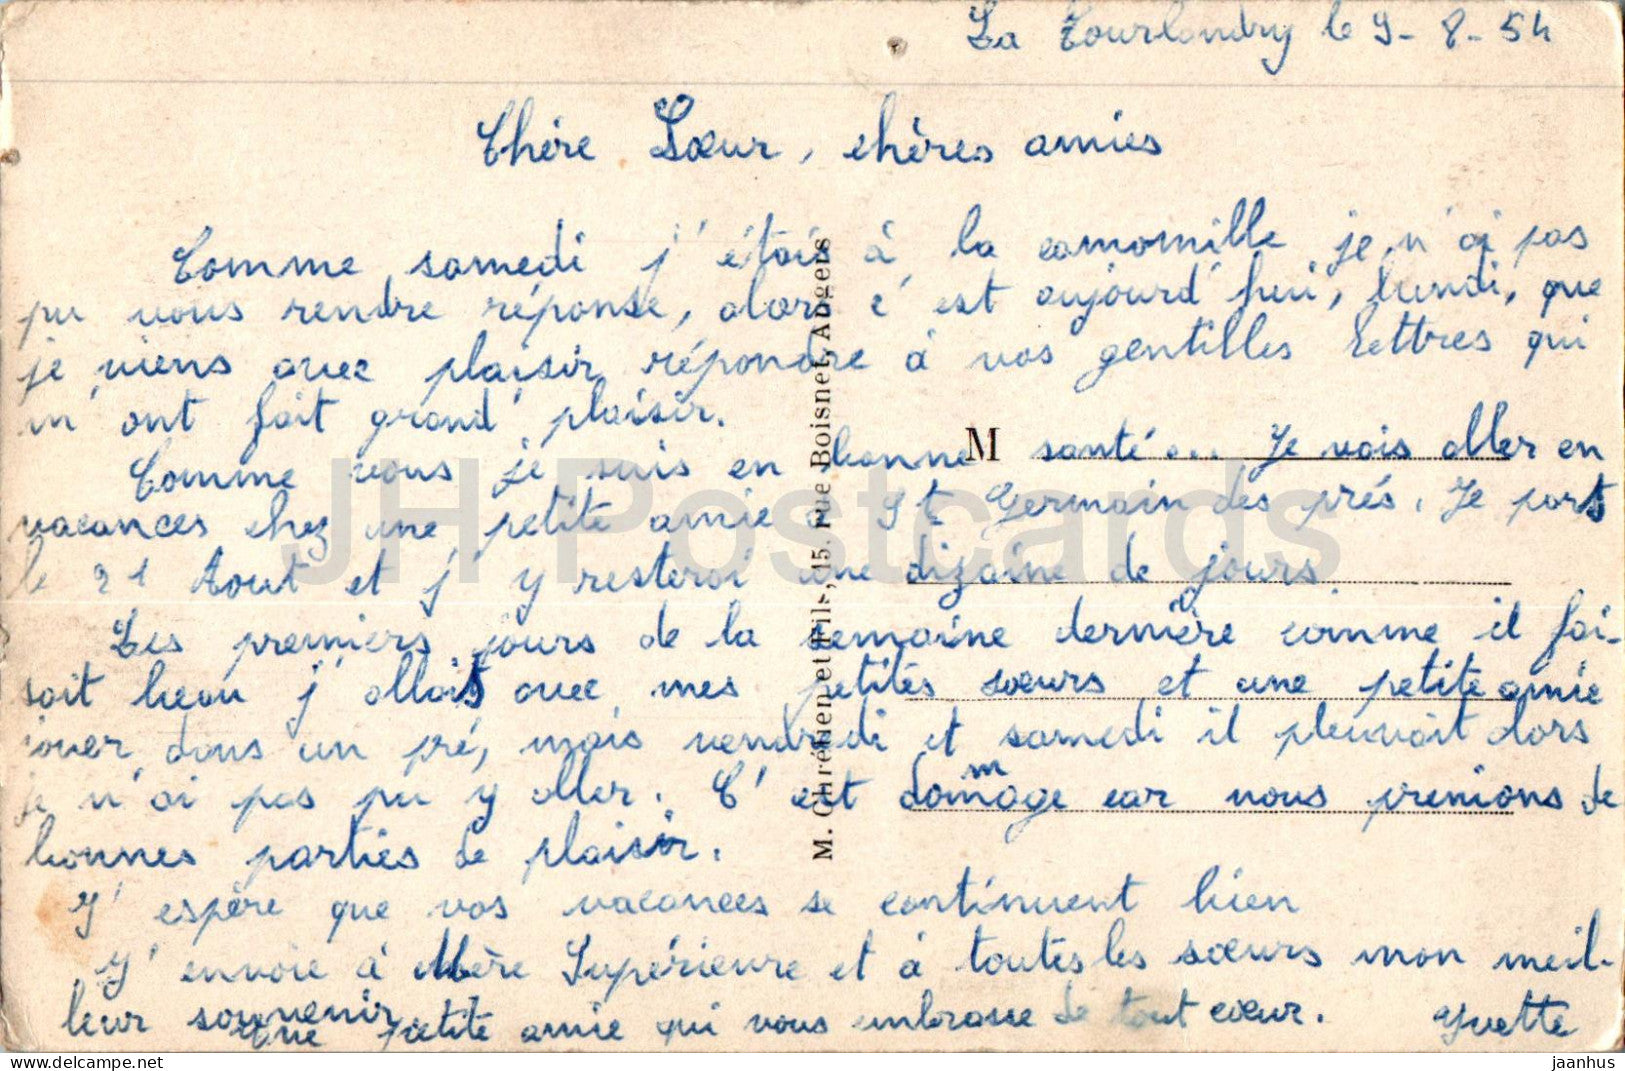 La Tourlandry le 9-8-54
Chère Sœur, chères amies
Comme samedi j'étais à la camomille je n'ai pas
pu vous rendre réponse, alors c'est aujourd'hui, lundi, que
je viens avec plaisir répondre à vos gentilles lettres qui
m'ont fait grand plaisir.
Comme vous je suis en bonne santé... Je vais aller en
vacances chez une petite amie à St Germain des prés. Je pars
le 21 Aout et j'y resterai une dizaine de jours
Les premiers jours de la semaine dernière comme il fai-
sait beau j'allais avec mes petites sœurs et une petite amie
jouer dans un pré, mais vendredi et samedi il pleuvait alors
je n'ai pas pu y aller. C'est dommage car nous prenions de
bonnes parties de plaisir.
J'espère que vos vacances se continuent bien
J'envoie à Mère Supérieure et à toutes les sœurs mon meil-
leur souvenir
Une petite amie qui vous embrasse de tout cœur. Yvette
M
M. Chrétien et Fils, 15, rue Boisnet, Angers
JH Postcards
DELCAMPE.NET
jaanhus